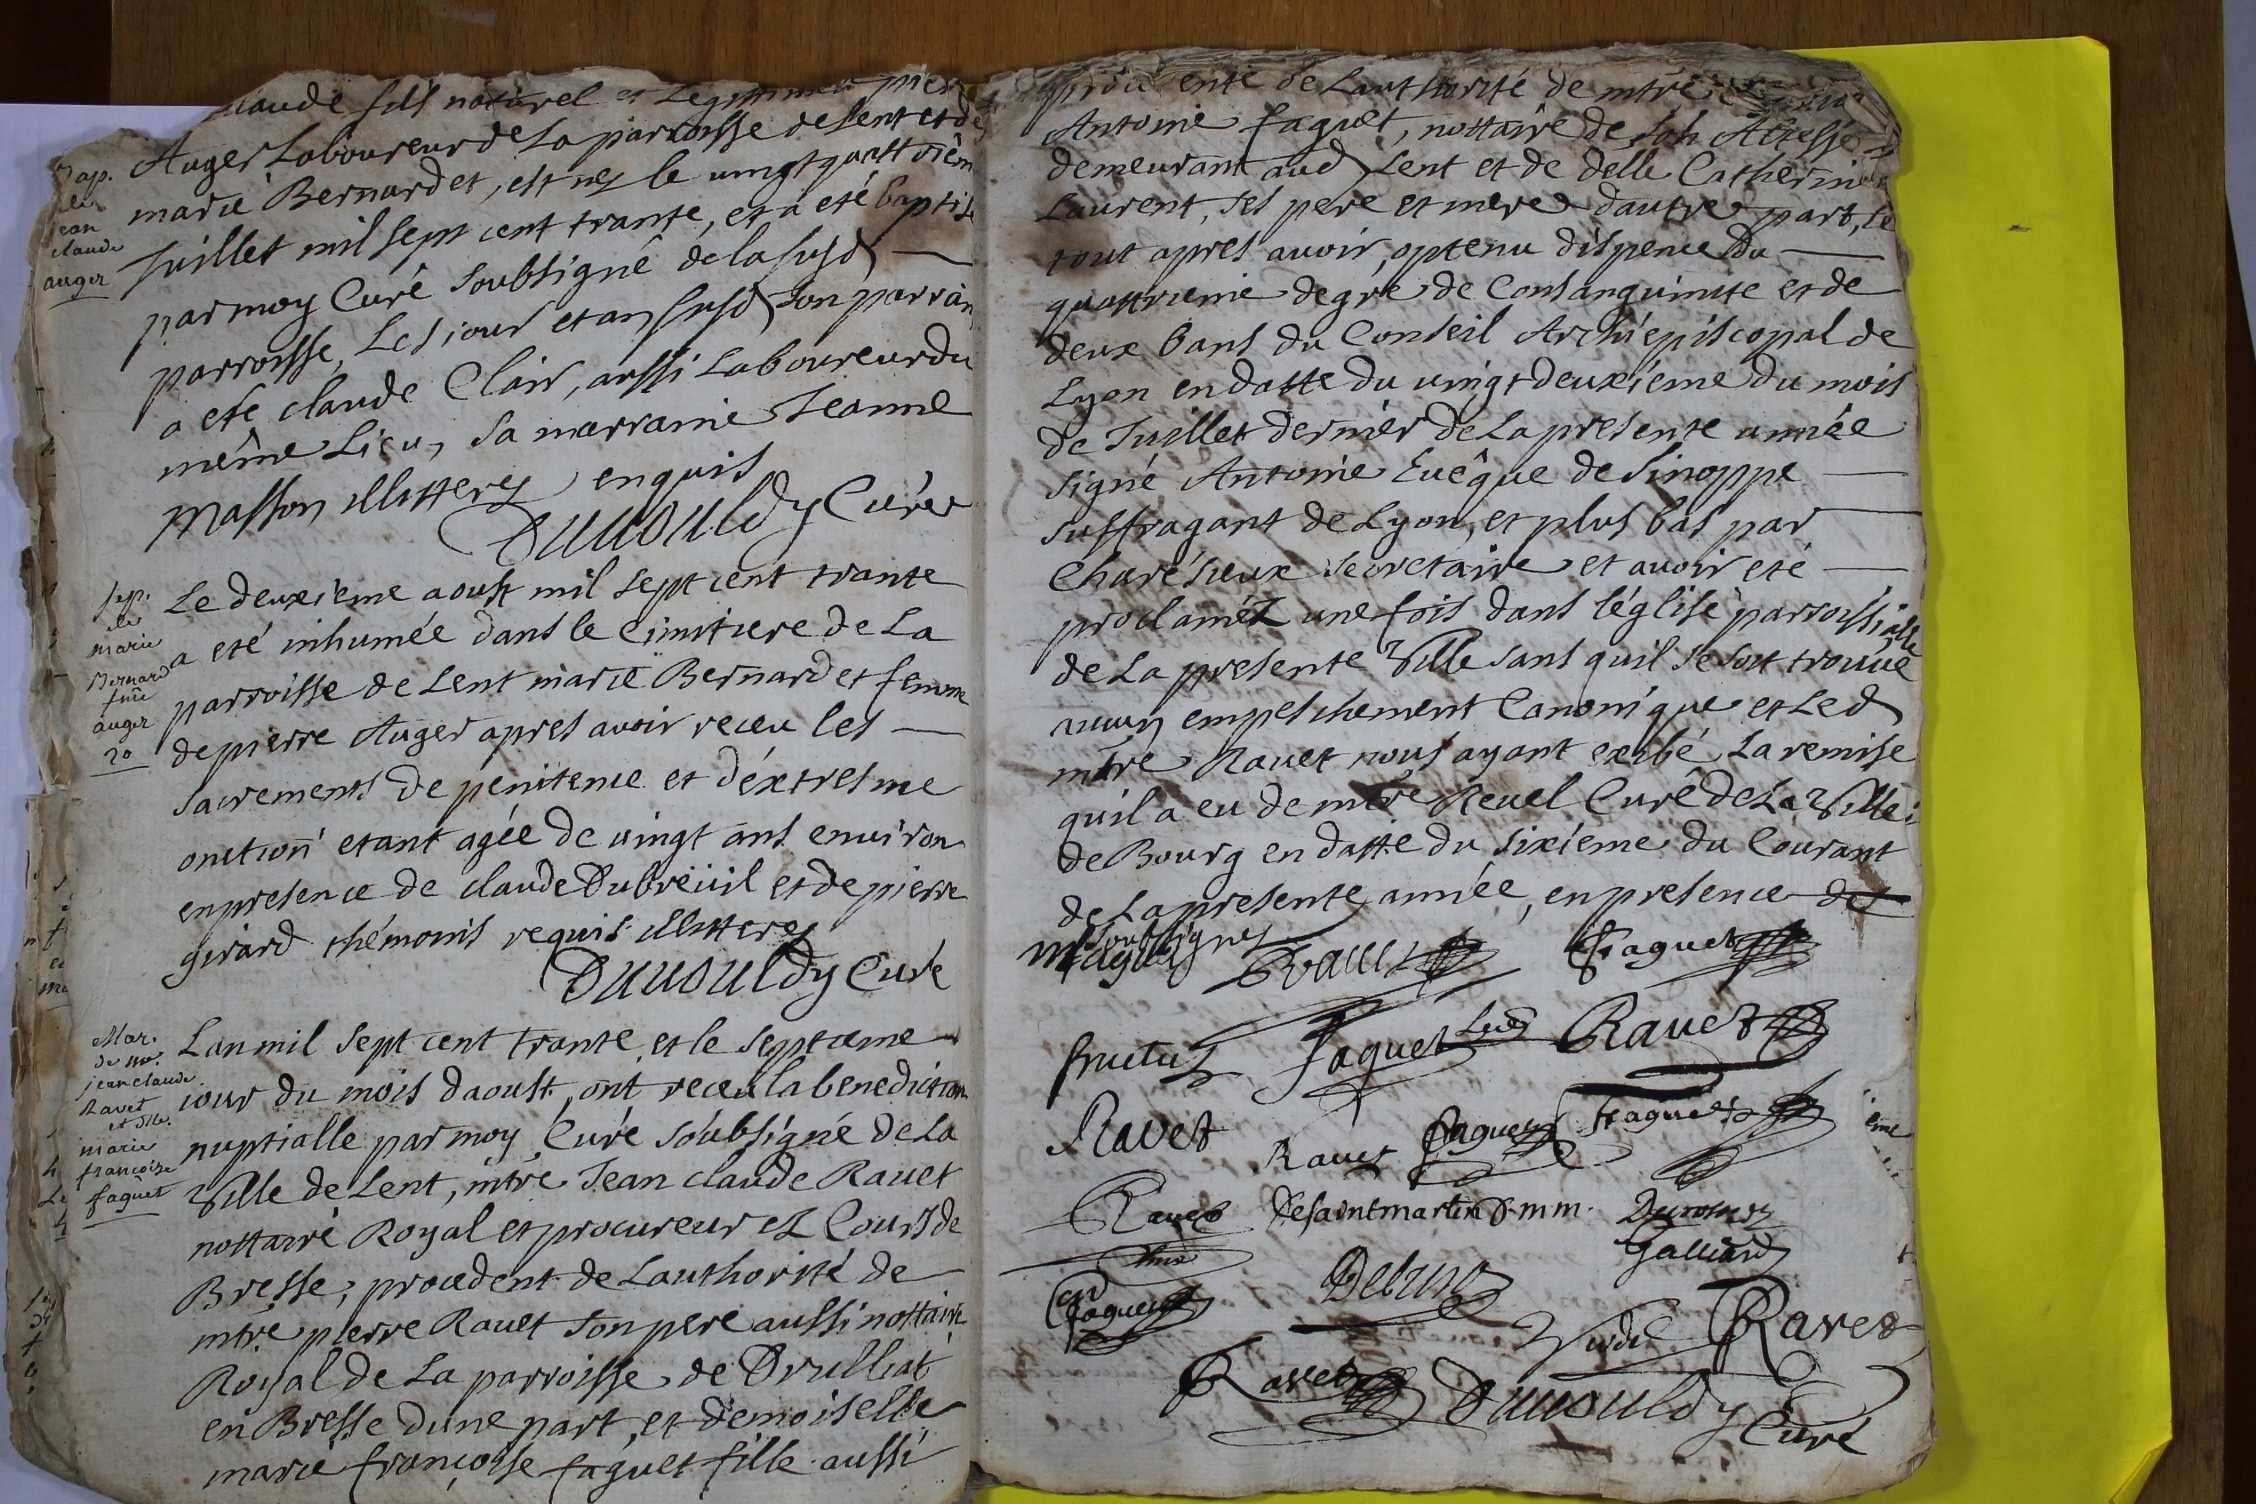 Claude fils naturel et Legittime
Auger Laboureur de La parroisse de Lent et de
marie Bernardet, est nez le vingt quattrièm
Juillet mil sept cent trante, et a eté baptisé
par moy Curé soubsigné de la susd
parroisse, Les jour et an susd son parrain
a eté claude Clair, aussi Laboureur du
même Lieu, sa marraine Jeanne
Masson illitterez enquis
Duuouldy Curé
Bap.
de
jean
claude
auger
Le deuxieme aoust mil sept cent trante
a eté inhumée dans le cimitiere de La
parroisse de Lent marie Bernardet femme
de pierre Auger apres avoir receu les
sacrements de penitence et d'éxtresme
onction etant agée de vingt ans environ
en presence de claude Dubreüil et de pierre
girard thémoins requis illitterez
Duuouldy Curé
sep.
de
marie
Bernard
fme
auger
20
L'an mil sept cent trante, et le septieme
jour du mois daoust, ont receu la benediction
nuptialle par moy Curé soubsigné de La
Ville de Lent, mtre Jean claude Rauet
nottaire Royal et procureur ez Cours de
Bresse, procedent de L'authorité de
mtre pierre Rauet son pere aussi nottaire
Royal de La parroisse de Druillat
en Bresse dune part, et demoiselle
marie françoise faguet fille aussi
Mar.
de me.
jean claude
Ravet
et Dlle.
marie
françoise
faguet
de L'authorité de mtre
Antoine faguet, nottaire de son Altesse
demeurant aud Lent et de delle Catherine
Laurent, ses pere et mere dautre part, Le
tout apres auoir optenu dispence du
quattrieme degré de Consanguinité et de
deux bans du Conseil Archiepiscopal de
Lyon en datte du vingt deuxieme du mois
de Juillet dernier de La presente année
signé Antoine Euêque de Sinoppe
suffragant de Lyon, et plus bas par
Charésieux secretaire et auoir eté
proclaméz une fois dans l'église parroissialle
de La presente Ville sans quil se soit trouué
aucun empeschement Canonique et Led
mtre Rauet nous ayant exibé La remise
quil a eu de mtre Reuel Curé de La Ville
de Bourg en datte du sixieme du Courant
de La presente année, en presence des
soubsignez
Rauet faguet
fructus faguet Rauet
Ravet Rauet faguet faguet
Ravet Desaintmartin
Galliard
faguet
Ravet
Ravet Duuouldy
Curé